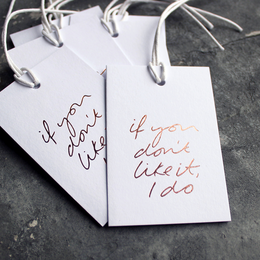 if you
don't
like it,
I
if you
don't
like it,
I do